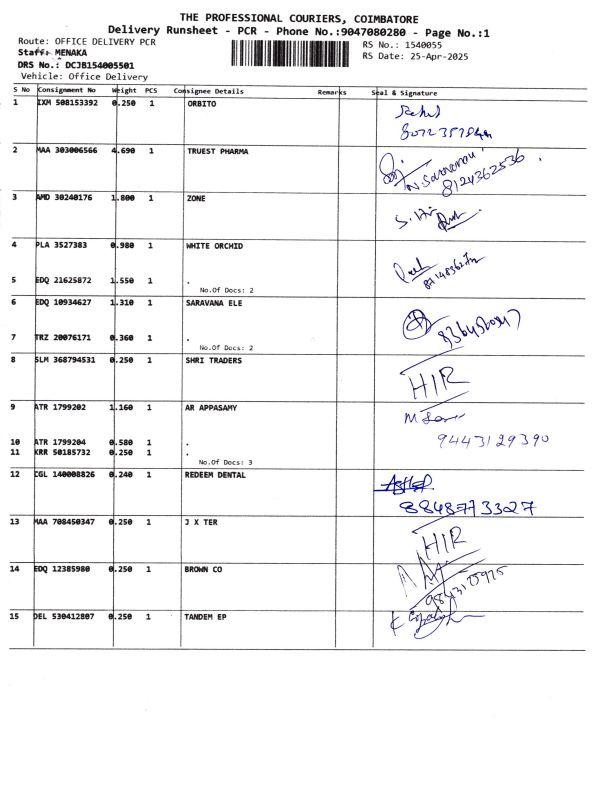 THE PROFESSIONAL COURIERS, COIMBATORE
Delivery Runsheet - PCR - Phone No.:9047080280 - Page No.:1
Route: OFFICE DELIVERY PCR
RS No.: 1540055
Staff: MENAKA
RS Date: 25-Apr-2025
DRS No.: DCJB154005501
Vehicle: Office Delivery
S No Consignment No Weight PCS Consignee Details Remarks Seal & Signature
1 IXM 508153392 0.250 1 ORBITO
2 MAA 303006566 4.690 1 TRUEST PHARMA
8124362536
3 AMD 30240176 1.800 1 ZONE
4 PLA 3527383 0.980 1 WHITE ORCHID
5 EDQ 21625872 1.550 1 .
No.Of Docs: 2
6 EDQ 10934627 1.310 1 SARAVANA ELE
7 TRZ 20076171 0.360 1 .
No.Of Docs: 2
8 SLM 368794531 0.250 1 SHRI TRADERS
HIR
9 ATR 1799202 1.160 1 AR APPASAMY
10 ATR 1799204 0.580 1 .
9443129390
11 KRR 50185732 0.250 1 .
No.Of Docs: 3
12 CGL 140008826 0.240 1 REDEEM DENTAL
8848773327
13 MAA 708450347 0.250 1 J X TER
HIR
14 EDQ 12385980 0.250 1 BROWN CO
15 DEL 530412807 0.250 1 TANDEM EP